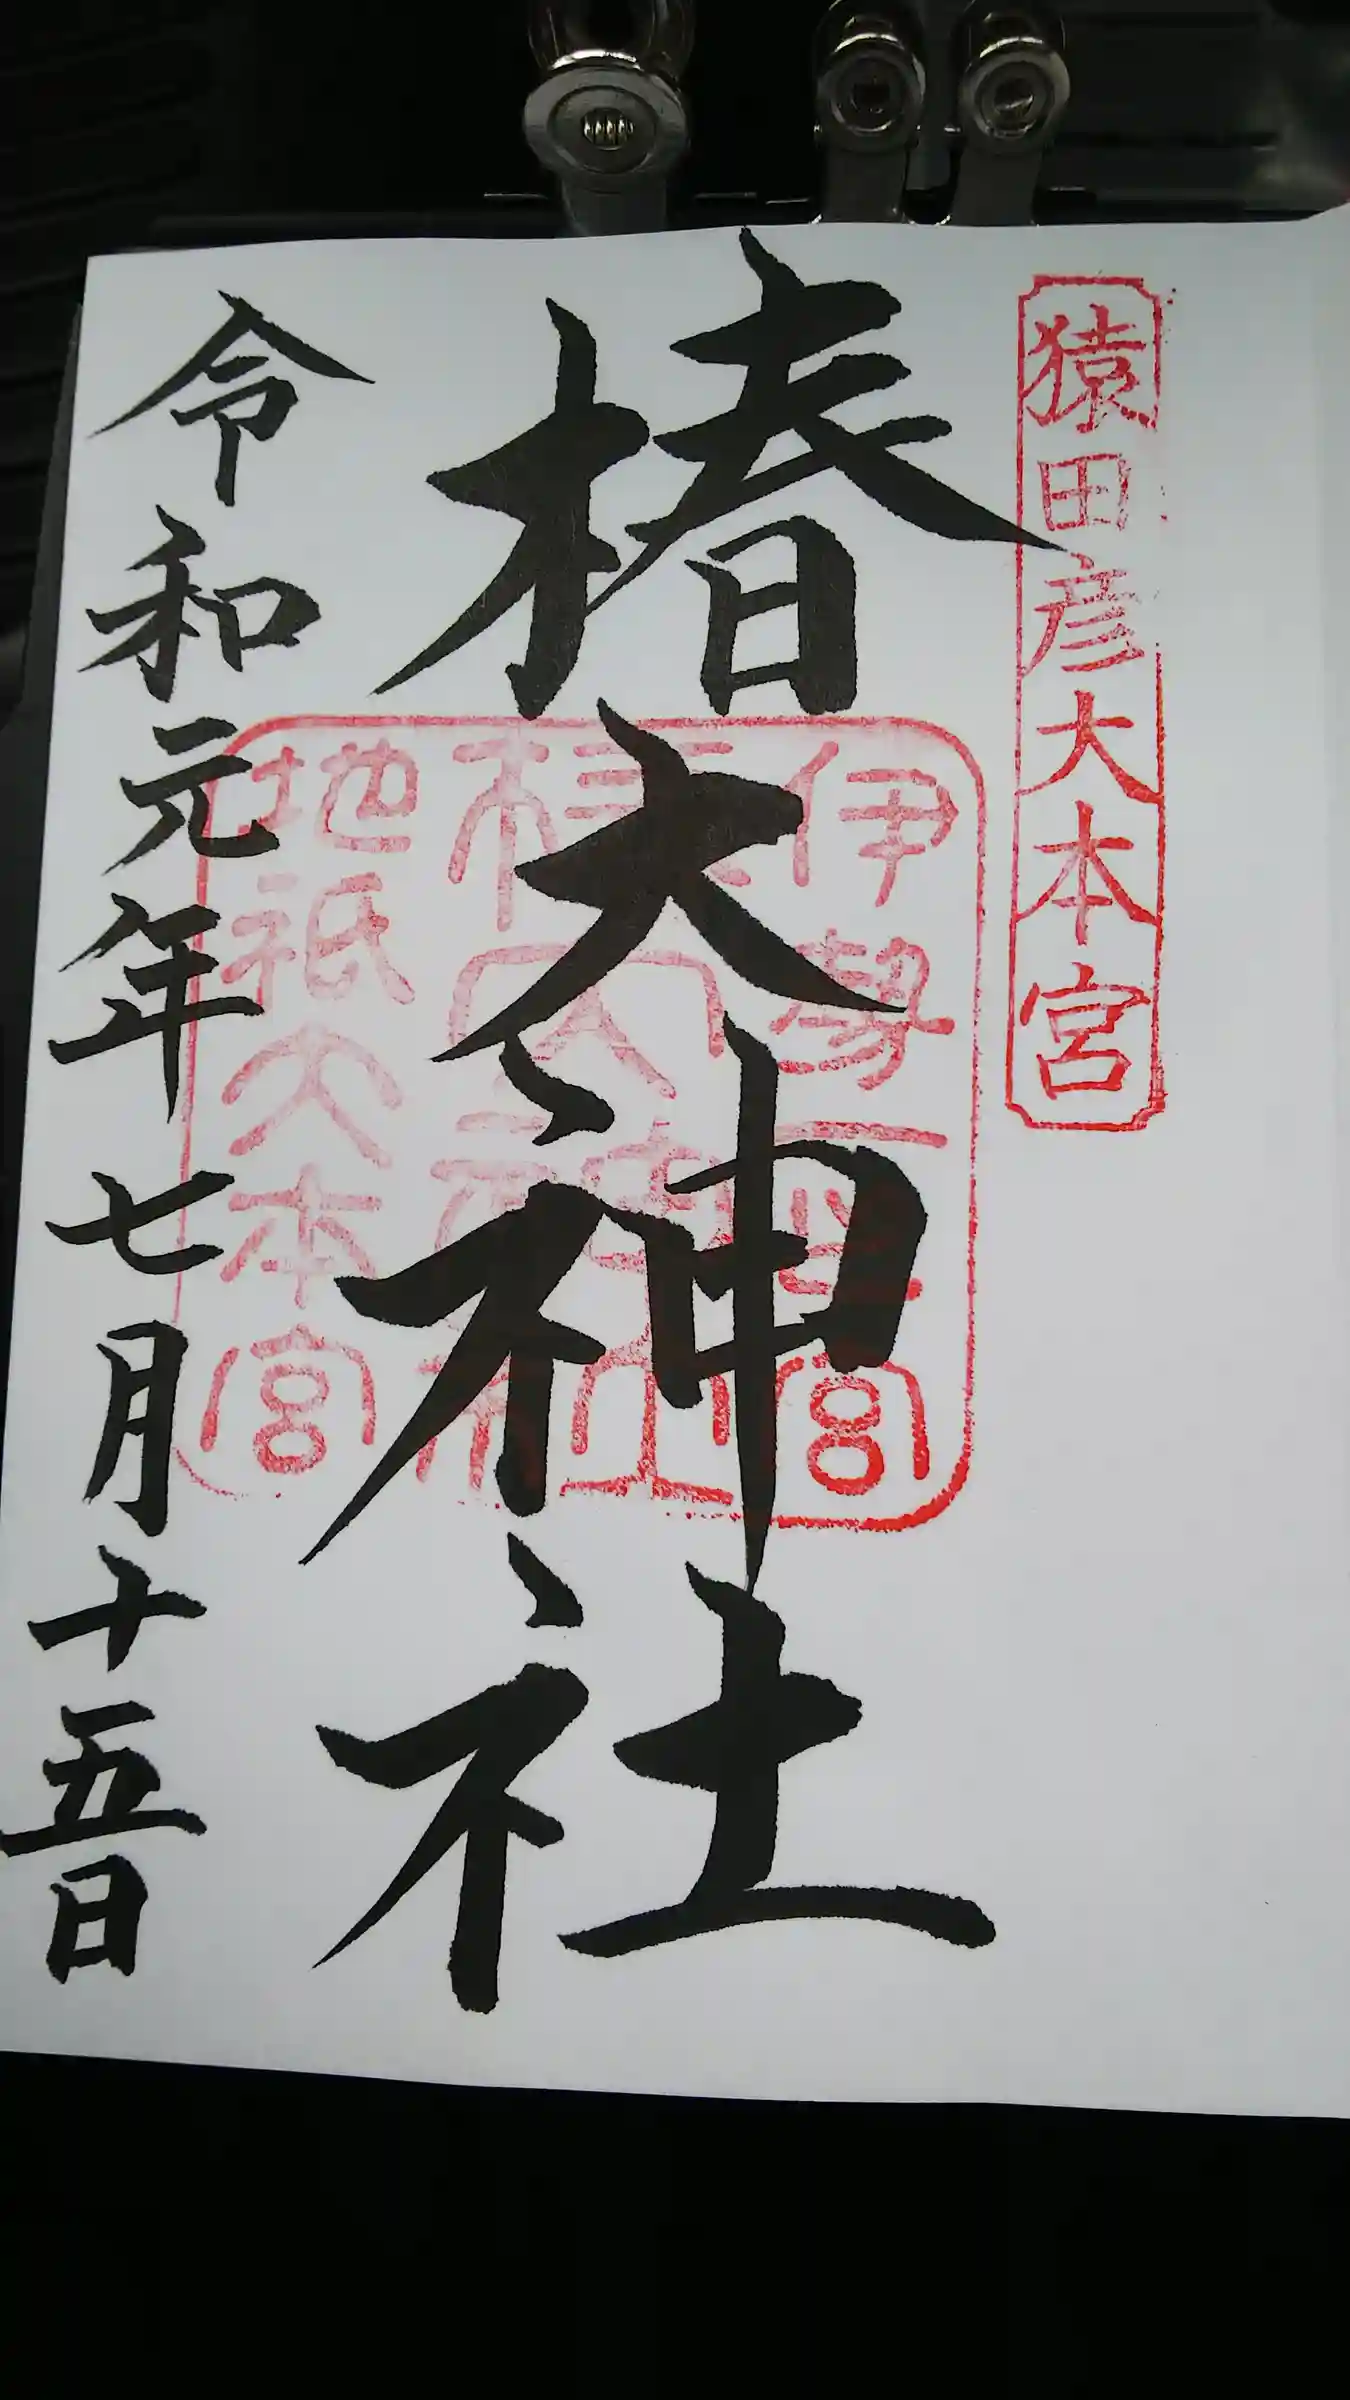 猿田彦大本宮
椿大神社
伊勢一之宮
椿大神社
地祇大本宮
令和元年七月十五日